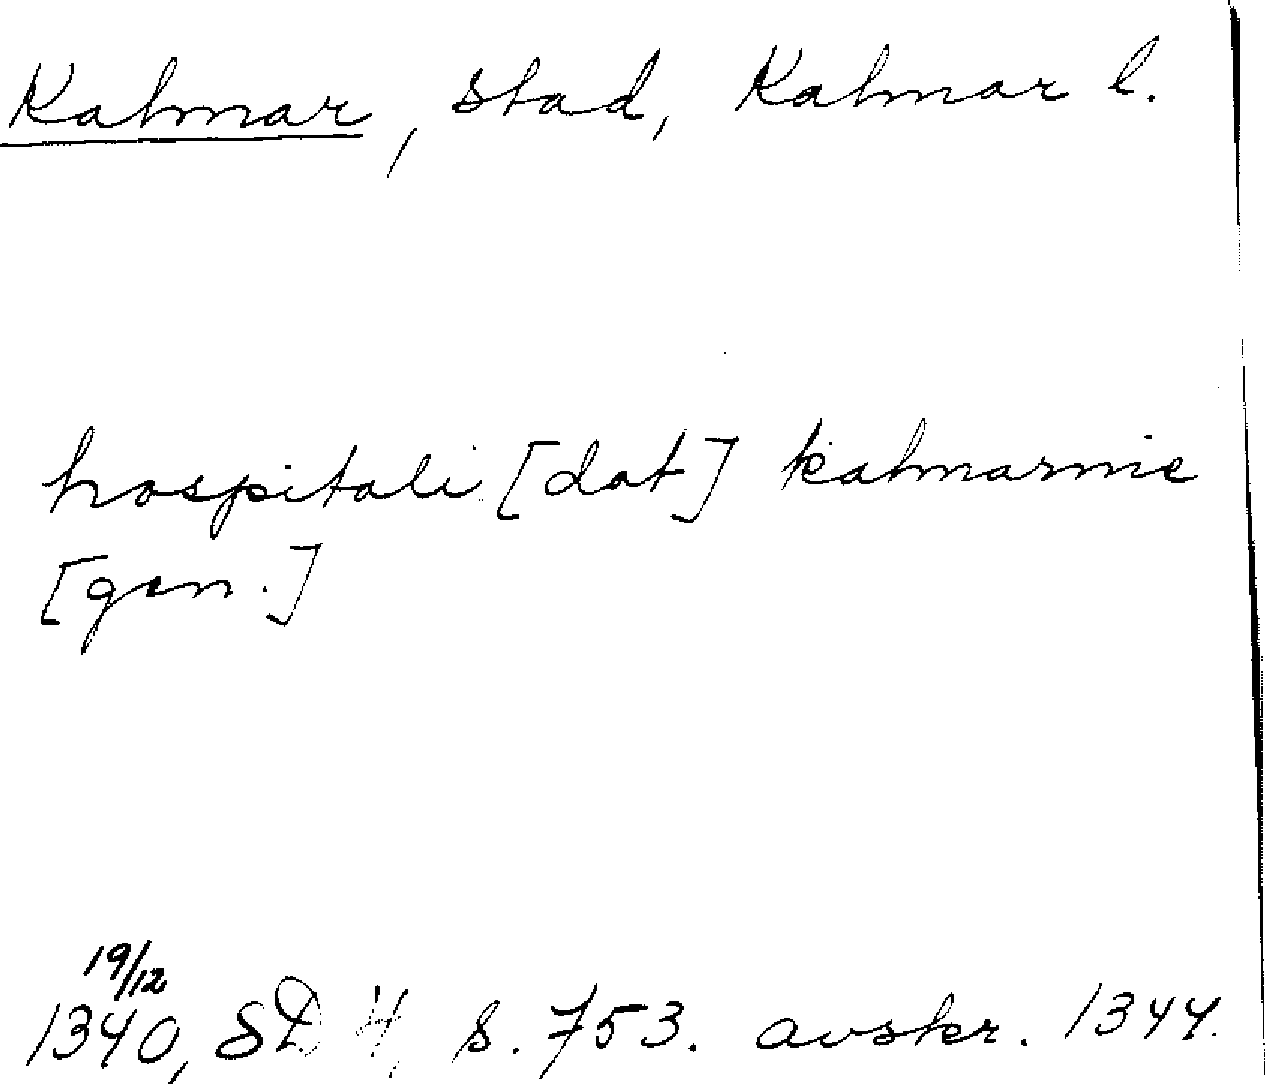 Kalmar, stad, Kalmar l.
hospitali [dat] kalmarnie
[gen.]
19/12
1340, SD 4, s. 753. avskr. 1344.